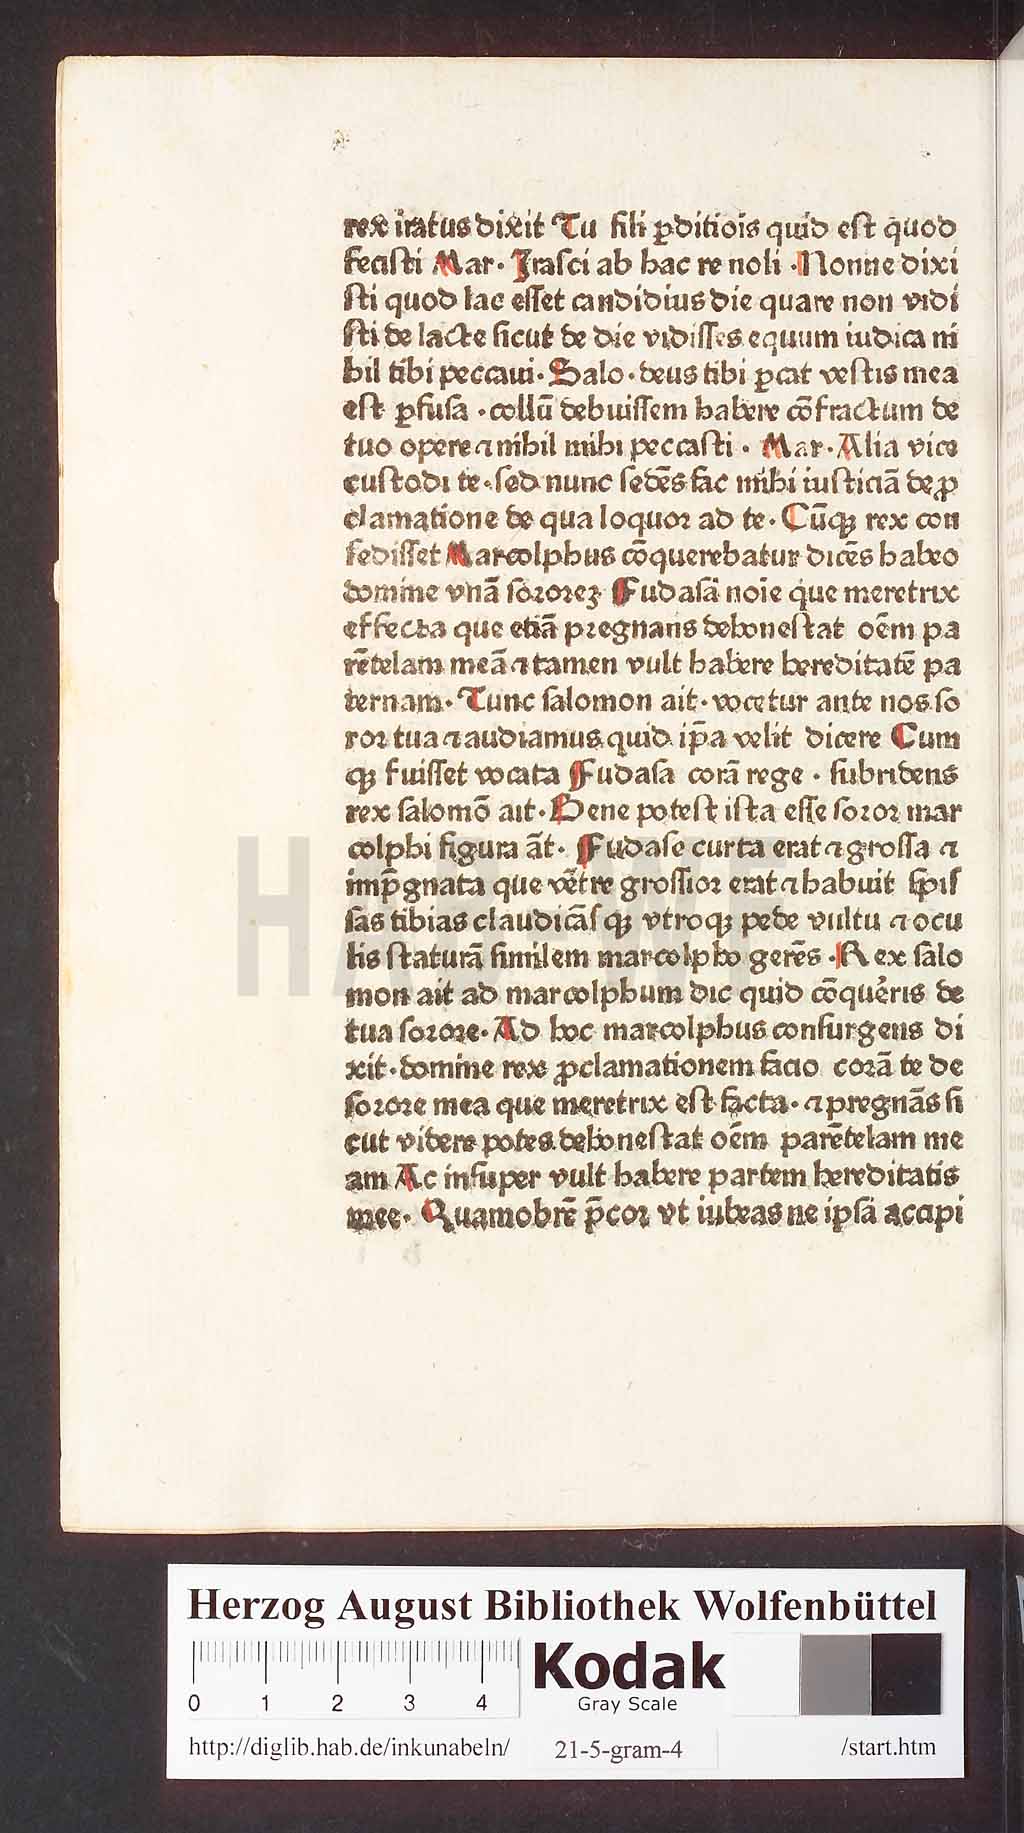 rex iratus dixit Tu fili ꝑditiōis quid est quod
fecisti Mar· Irasci ab hac re noli ·Nonne dixi
sti quod lac esset candidius die quare non vidi
sti de lacte sicut de die vidisses equum iudica ni
hil tibi peccaui· Salo· deus tibi ꝑcat vestis mea
est ꝑfusa ·collū debuissem habere cōfractum de
tuo opere ⁊ nihil mihi peccasti · Mar· Alia vice
custodi te· sed nunc sedēs fac mihi iusticiā de ꝓ
clamatione de qua loquor ad te· Cūqꝫ rex con
sedisset Marcolphus cōquerebatur dicēs habeo
domine vnā sororeꝫ Fudasā noīe que meretrix
effecta que etiā pregnans dehonestat oēm pa
rētelam meā ⁊ tamen vult habere hereditatē pa
ternam· Tunc salomon ait· vocetur ante nos so
ror tua ⁊ audiamus quid ip̄a velit dicere Cum
qꝫ fuisset vocata Fudasa corā rege · subridens
rex salomō ait· Bene potest ista esse soror mar
colphi figura āt· Fudase curta erat ⁊ grossa ⁊
imp̄gnata que vētre grossior erat ⁊ habuit spis
sas tibias claudicās qꝫ vtroqꝫ pede vultu ⁊ ocu
lis staturā similem marcolpho gerēs ·Rex salo
mon ait ad marcolphum dic quid cōqueris de
tua sorore· Ad hoc marcolphus consurgens di
xit· domine rex ꝓclamationem facio corā te de
sorore mea que meretrix est facta· ⁊ pregnās si
cut videre potes dehonestat oēm parētelam me
am Ac insuper vult habere partem hereditatis
mee· Quamobrē p̄cor vt iubeas ne ipsā accipi
HAB WF
Herzog August Bibliothek Wolfenbüttel
0 1 2 3 4
Kodak
Gray Scale
http://diglib.hab.de/inkunabeln/ 21-5-gram-4 /start.htm